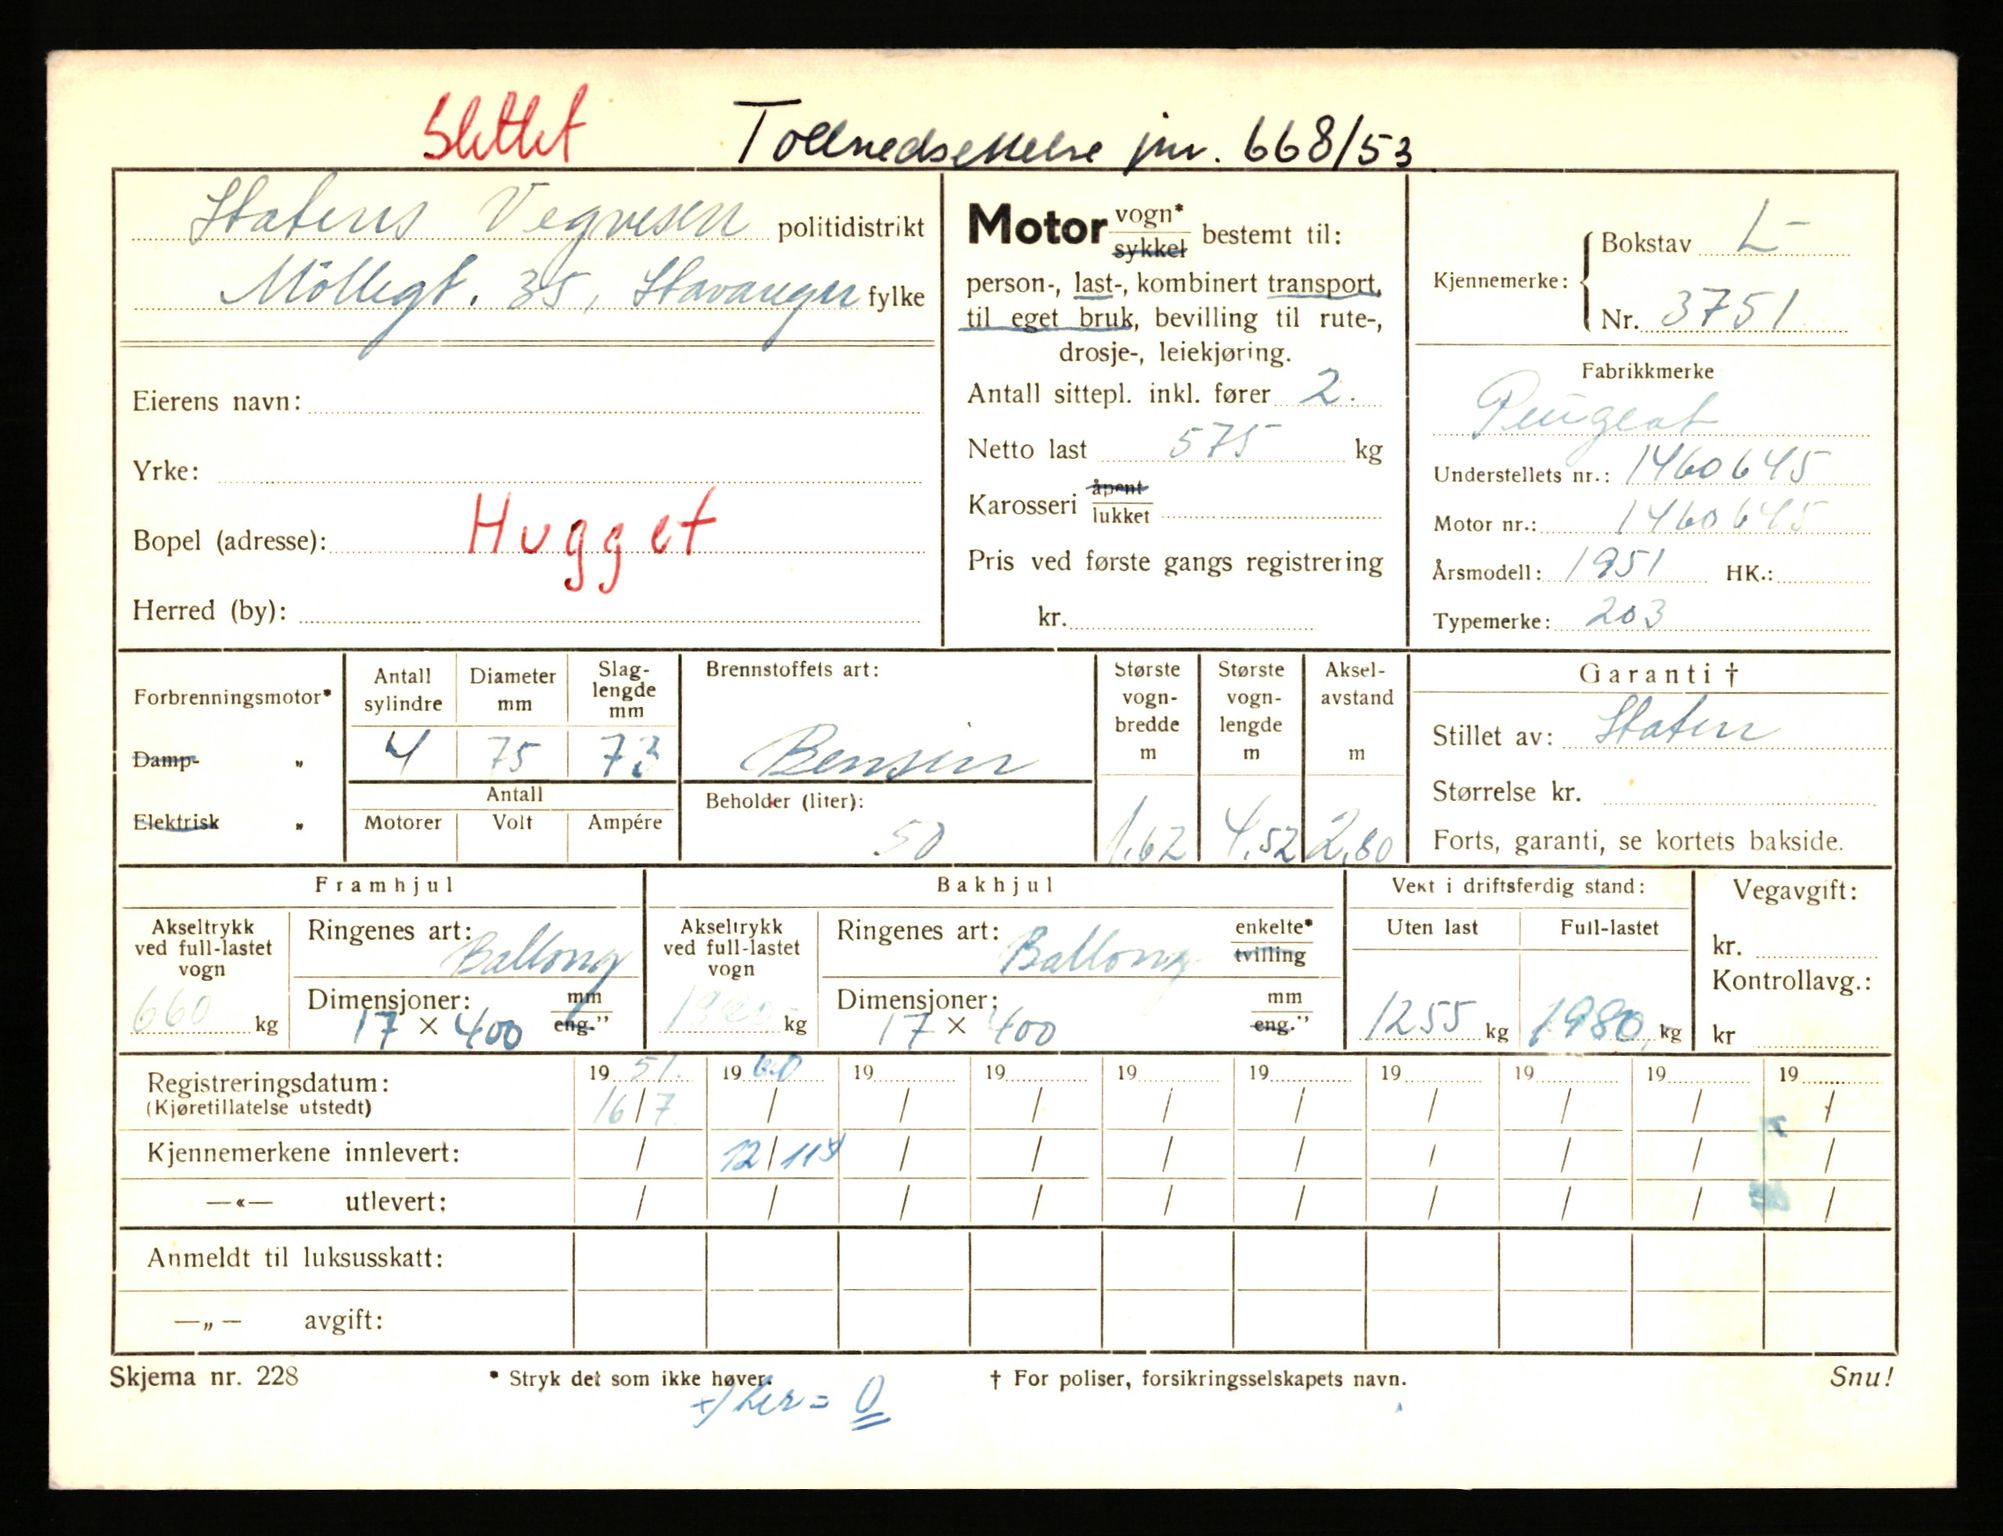 Slettet Tollnedsettelse jnr. 668/53
Statens Vegvesen politidistrikt
Möllegt. 35, Stavanger fylke
Eierens navn:
Yrke:
Bopel (adresse): Hugget
Herred (by):
Motor vogn* sykkel bestemt til:
person-, last-, kombinert transport,
til eget bruk, bevilling til rute-,
drosje-, leiekjøring.
Antall sittepl. inkl. fører 2.
Netto last 575 kg
Karosseri åpent lukket
Pris ved første gangs registrering
kr.
Kjennemerke: Bokstav L-
Nr. 3751
Fabrikkmerke
Peugeot
Understellets nr.: 1460645
Motor nr.: 1460645
Årsmodell: 1951 HK.:
Typemerke: 203
Forbrenningsmotor*
Damp- „
Elektrisk „
Antall sylindre
4
Diameter mm
75
Slag-
lengde
mm
73
Antall
Motorer Volt Ampére
Brennstoffets art:
Bensin
Beholder (liter):
50
Største
vogn-
bredde
m
1.62
Største
vogn-
lengde
m
4.52
Aksel-
avstand
m
2.80
Garanti †
Stillet av: Staten
Størrelse kr.
Forts, garanti, se kortets bakside.
Framhjul
Akseltrykk
ved full-lastet
vogn
660 kg
Ringenes art: Ballong
Dimensjoner: mm eng."
17 × 400
Bakhjul
Akseltrykk
ved full-lastet
vogn
kg
Ringenes art: Ballong enkelte* tvilling
Dimensjoner: mm eng."
17 × 400
Vekt i driftsferdig stand:
Uten last Full-lastet
1255 kg 1980 kg
Vegavgift:
kr.
Kontrollavg.:
kr
Registreringsdatum: 19 51. 19 60 19 19 19 19 19 19 19 19
(Kjøretillatelse utstedt) 16/7 / / / / / / / / /
Kjennemerkene innlevert: / 12/11 / / / / / / / /
—«— utlevert: / / / / / / / / / /
Anmeldt til luksusskatt:
—„— avgift:
Skjema nr. 228 * Stryk det som ikke høver. † For poliser, forsikringsselskapets navn. Snu!
= 0